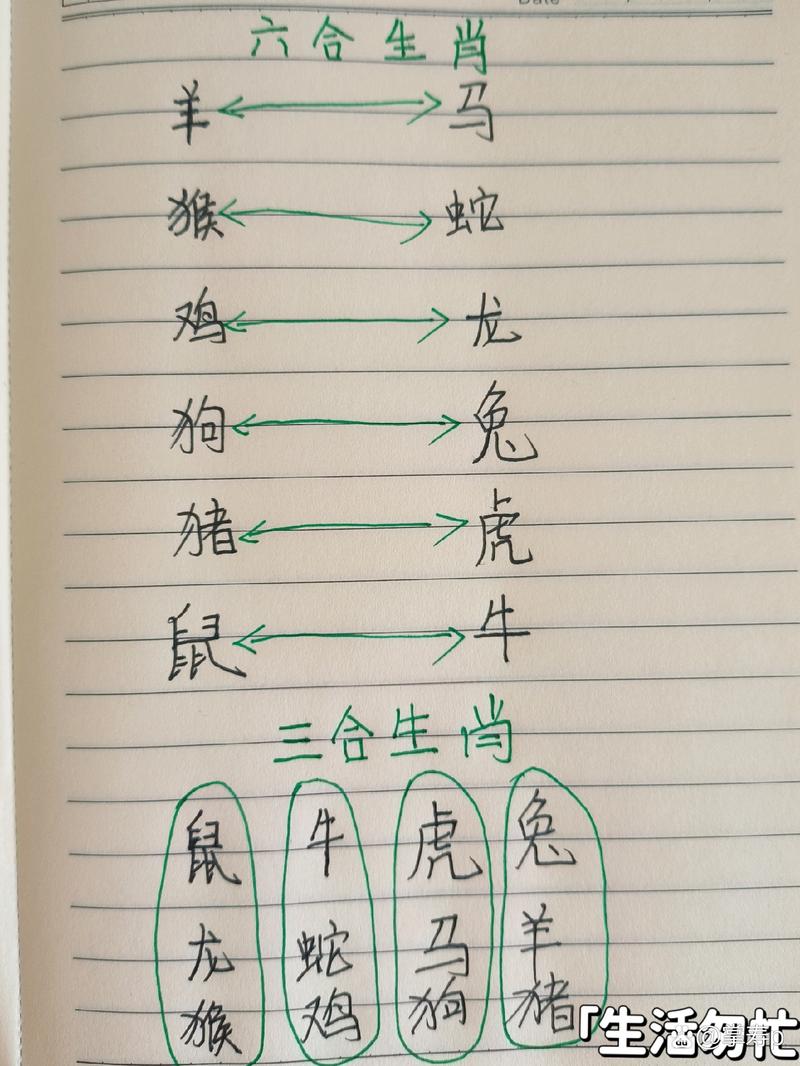 Date
六合生肖
羊 马
猴 蛇
鸡 龙
狗 兔
猪 虎
鼠 牛
三合生肖
鼠 牛 虎 兔
龙 蛇 马 羊
猴 鸡 狗 猪
「生活勿忙